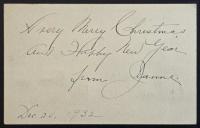 A very Merry Christmas
and Happy New Year
from
Dec. 20, 1932